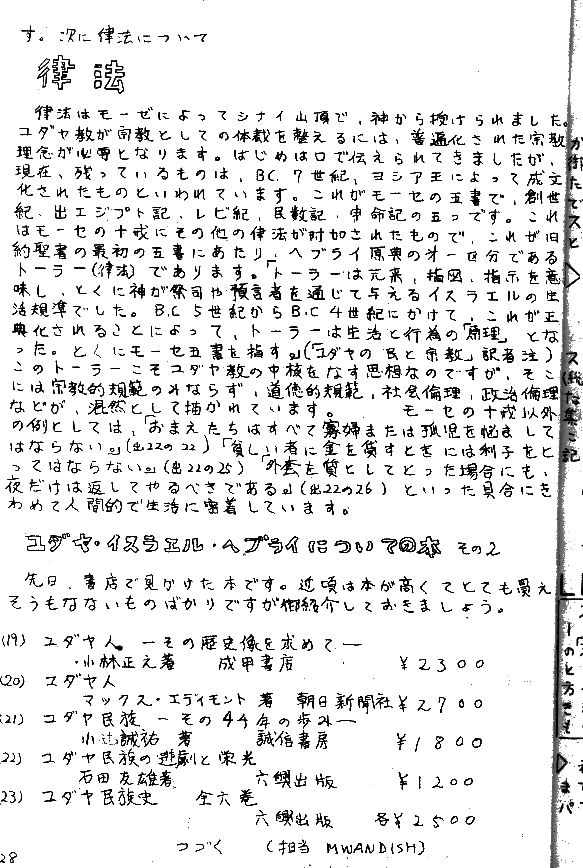 す。次に律法について
律法
律法はモーゼによってシナイ山頂で、神から授けられました。
ユダヤ教が宗教としての体裁を整えるには、普遍化された宗教
理念が必要となります。はじめは口で伝えられてきましたが、
現在、残っているものは、B.C. 7世紀、ヨシア王によって成文
化されたものといわれています。これがモーセの五書で、創世
紀、出エジプト記、レビ紀、民数記、申命記の五つです。これ
はモーセの十戒にその他の律法が附加されたもので、これが旧
約聖書の最初の五書にあたり、ヘブライ原典のオー区分である
トーラー(律法)であります。「トーラーは元来、指図、指示を意
味し、とくに神が祭司や預言者を通じて与えるイスラエルの生
活規準でした。B.C 5世紀からB.C 4世紀にかけて、これが正
典化されることによって、トーラーは生活と行為の「原理」とな
った。とくにモーセ五書を指す。」(「ユダヤの民と宗教」訳者注)
このトーラーこそユダヤ教の中核をなす思想なのですが、そこ
には宗教的規範のみならず、道徳的規範、社会倫理、政治倫理
などが、混然として描かれています。 モーセの十戒以外
の例としては、「おまえたちはすべて寡婦または孤児を悩まして
はならない。」(出22の22)「貧しい者に金を貸すときには利子をと
ってはならない。」(出22の25)「外套を質としてとった場合にも、
夜だけは返してやるべきである。」(出22の26)といった具合にき
わめて人間的で生活に密着しています。
ユダヤ・イスラエル・ヘブライについての本 その2
先日、書店で見かけた本です。近頃は本が高くてとても買え
そうもなないものばかりですが御紹介しておきましょう。
(19) ユダヤ人 ーその歴史像を求めてー
・小林正之著 成甲書房 ¥2300
(20) ユダヤ人
マックス・エディモント 著 朝日新聞社 ¥2700
(21) ユダヤ民族 ーその44年の歩みー
小辻誠祐 著 誠信書房 ¥1800
(22) ユダヤ民族の悲劇と栄光
石田友雄著 六興出版 ¥1200
(23) ユダヤ民族史 全六巻
六興出版 各¥2500
つづく (担当 MWANDISH)
28